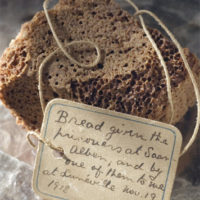 Bread given the
prisoners at Saar
Alben, and by
one of them to me
at Luneville Nov. 19
1918